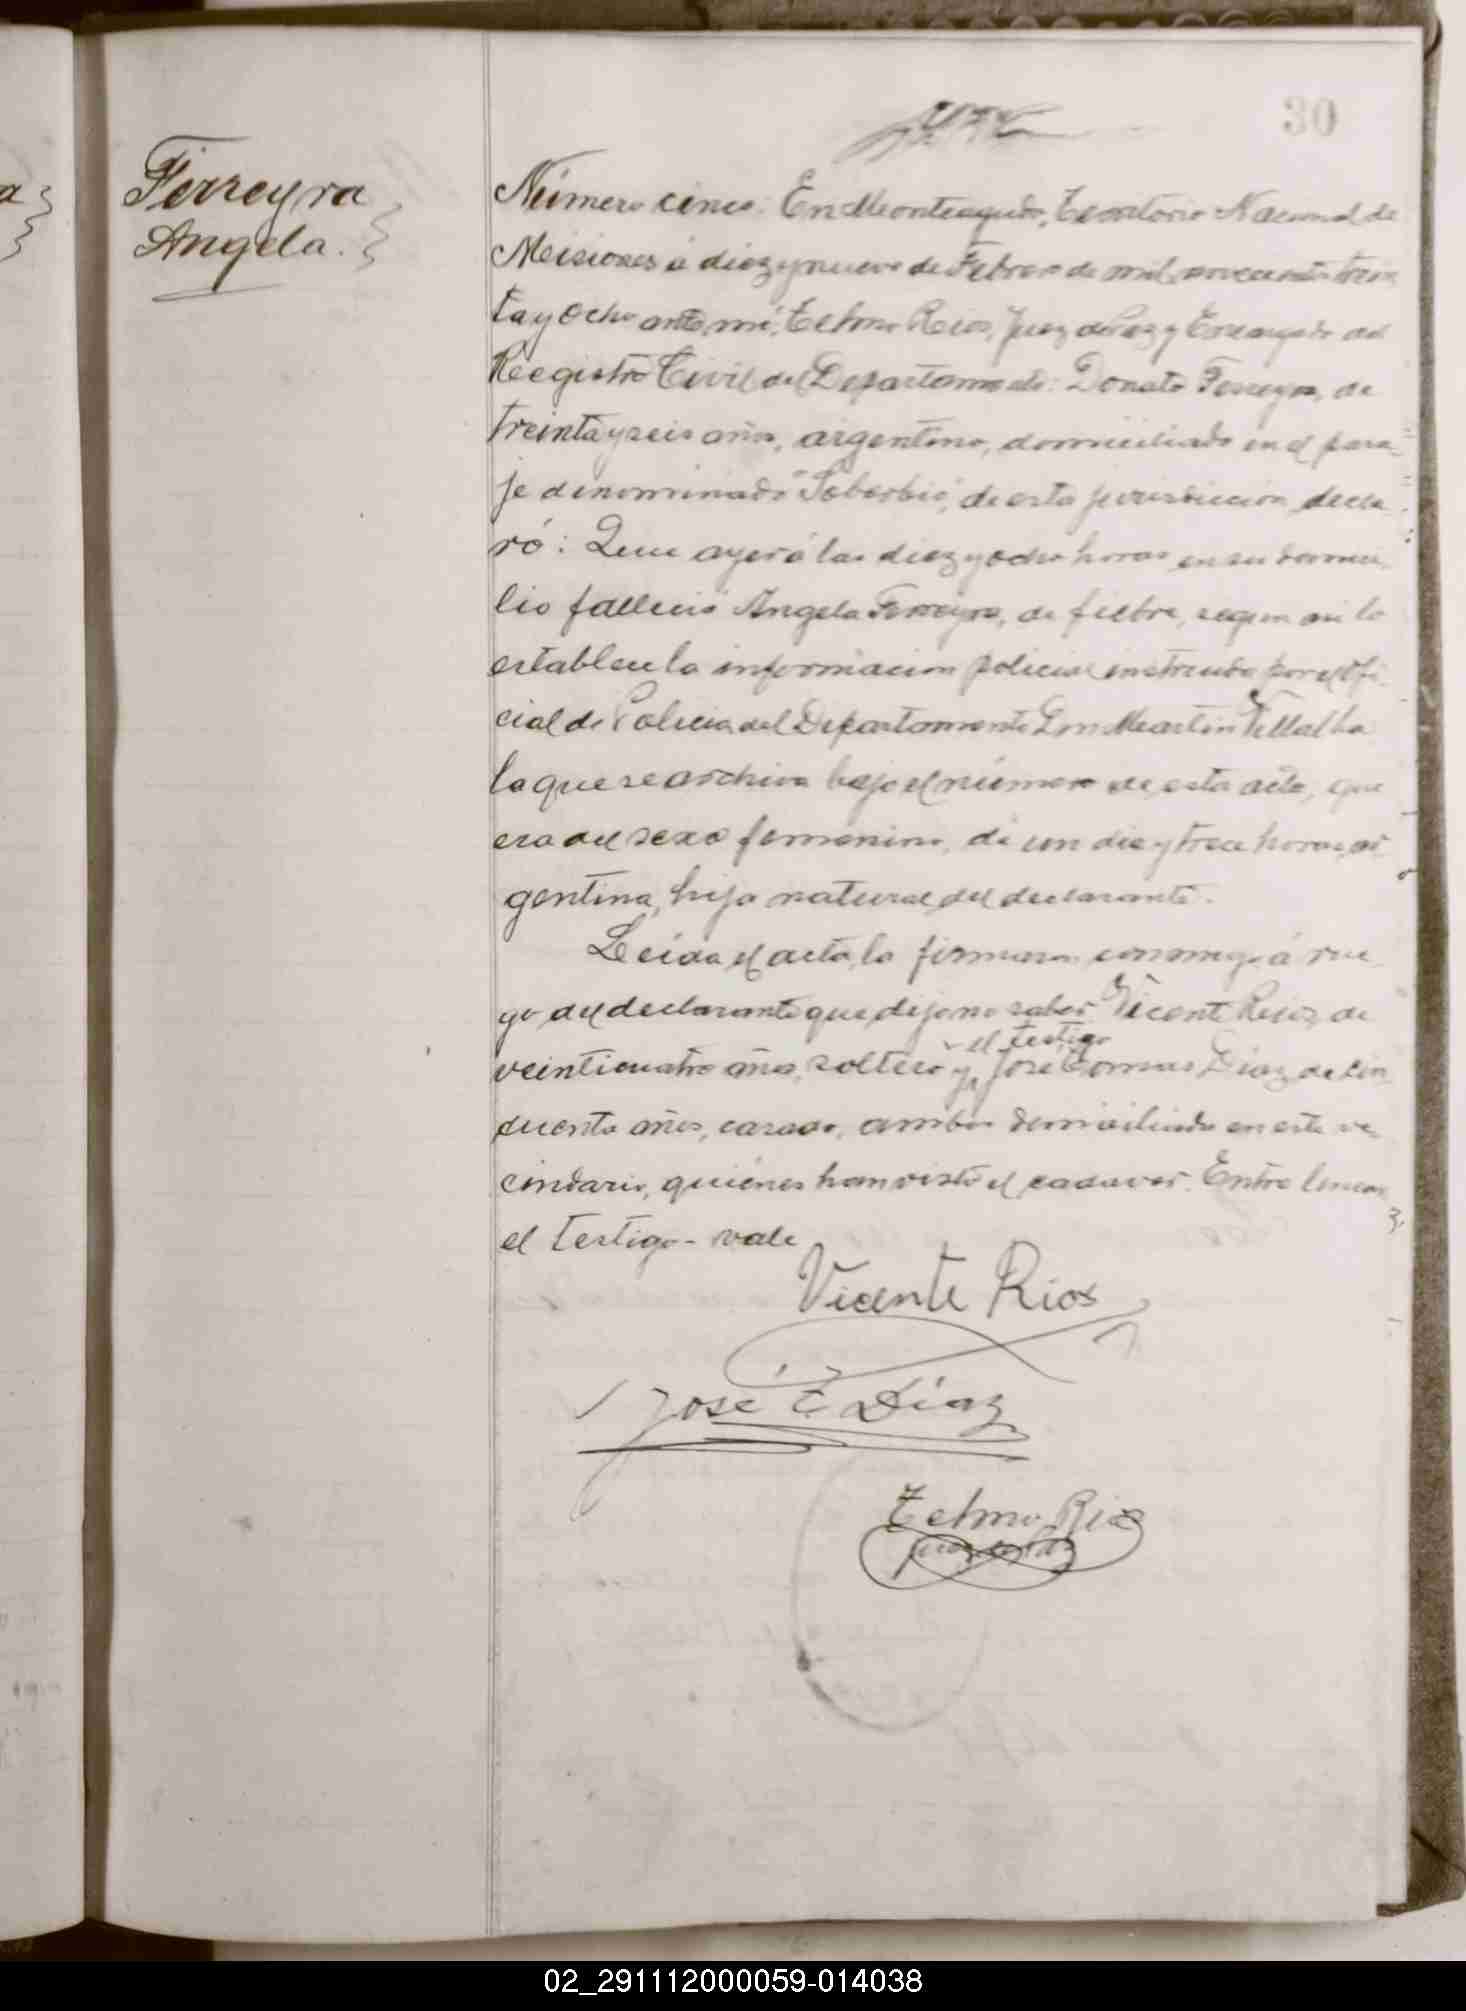 30
Ferreyra
Angela.
Número cinco: En Monteagudo, Territorio Nacional de
Misiones á diez y nueve de Febrero de mil novecientos trein
ta y ocho ante mí, Telmo Rios, Juez de Paz y Encargado del
Registro Civil del Departamento: Donato Ferreyra, de
treinta y seis años, argentino, domiciliado en el para-
je denominado "Soberbio", de esta jurisdicción, decla
ró: Que ayer á las diez y ocho horas en su domici
lio falleció Angela Ferreyra, de fiebre, segun asi lo
establece la informacion policial instruida por el Ofi-
cial de Policia del Departamento Don Martin Villalba
la que se archiva bajo el número de esta acta, que
era del sexo femenino, de un dia y trece horas, ar
gentina, hija natural del declarante.
Leída el acta, la firmaron conmigo á rue
go del declarante que dijo no saber Vicente Rios, de
el testigo
veinticuatro años, soltero y José Tomas Diaz, de cin
cuenta años, casado, ambos domiciliados en este ve
cindario, quiénes han visto el cadaver. Entre lineas
el testigo - vale
Vicente Rios
José T. Diaz
Telmo Rios
Juez de Paz
02_291112000059-014038